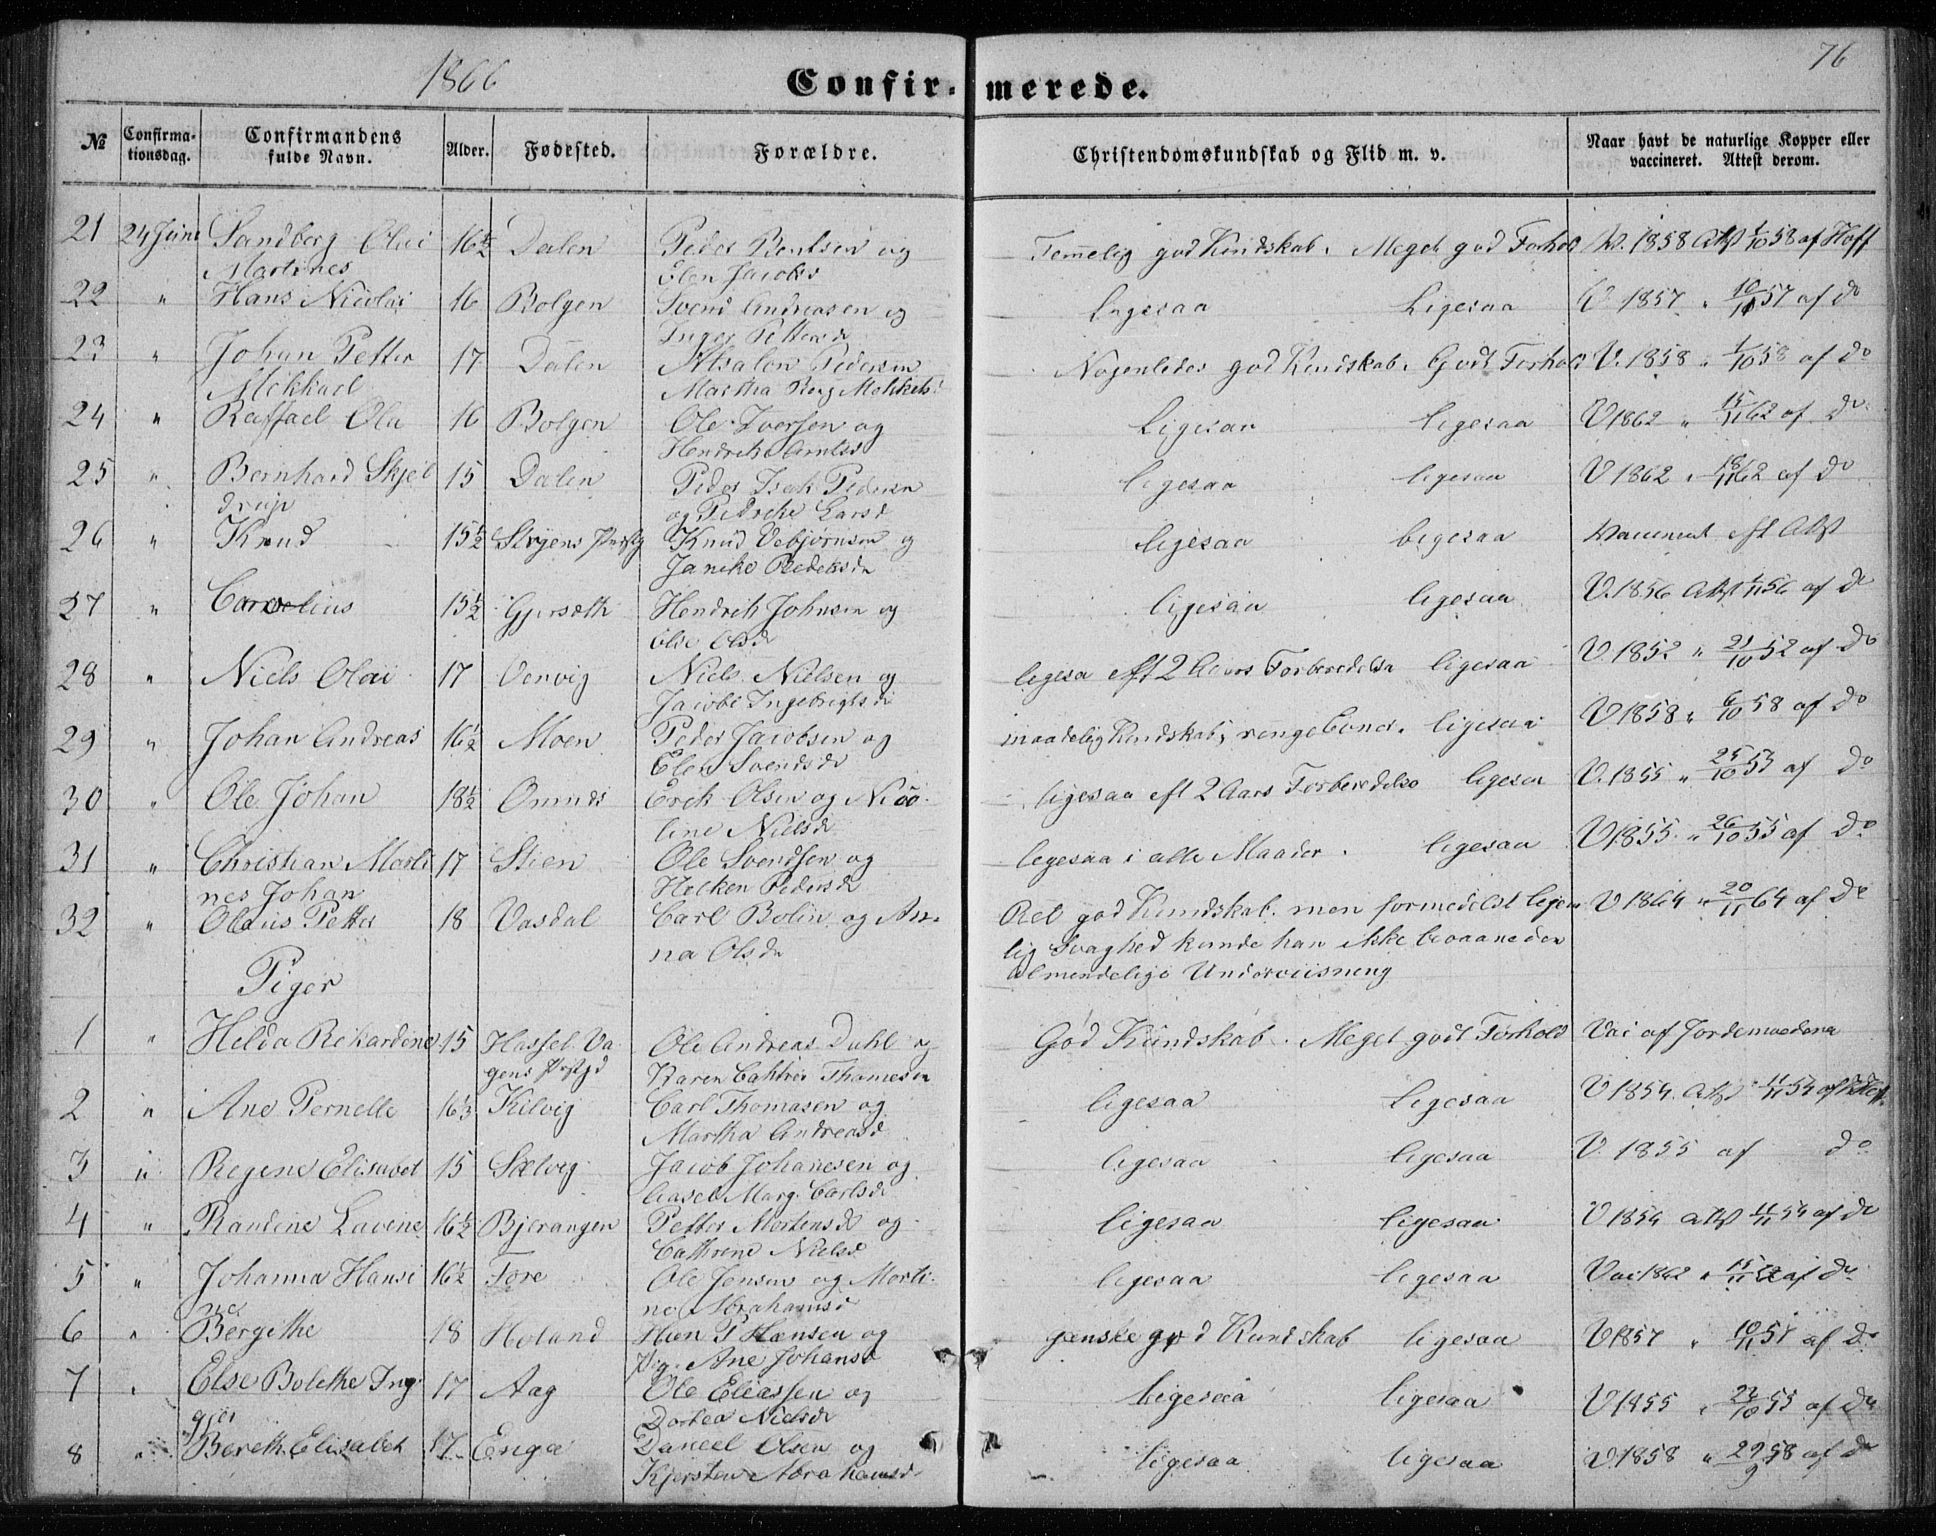 1866 Confirmerede. 76
№ Confirmationsdag. Confirmandens fulde Navn. Alder. Fødested. Forældre. Christendomskundskab og Flid m. v. Naar havt de naturlige Kopper eller vaccineret. Attest derom.
21 24 Juni Sandberg Olai 16½ Dalen Peder Bentsen og Temmelig god Kundskab. Meget god Forhold V. 1858 Att 1/10 58 af Hoff
Martines Elen Jacobsd
22 " Hans Nicolai 16 Bolgen Svend Andreasen og Ligesaa Ligesaa V. 1857 " 10/11 57 af do
Inger Pettersd
23 " Johan Petter 17 Dalen Absalon Pedersen Nogenledes god Kundskab. Godt Forhold V. 1858 " 1/10 58 af do
Mikkael Martha Berg Mekkels
24 " Raffael Ola 16 Bolgen Ole Iversen og Ligesaa ligesaa V 1862 " 15/11 62 af do
Hendrik Arntsd
25 " Bernhard Skjel 15 Dalen Peder Isak Pedersen ligesaa ligesaa V 1862 " 18/11 62 af do
drup og Petrike Larsd
26 " Knud 15½ Knud Vebjørnsen og ligesaa ligesaa eft Att
27 " Cornelius 15½ Gjersæth Hendrik Johnsen og ligesaa ligesaa V. 1856 Att 56 af do
Else Olsd
28 " Niels Olai 17 Vervig Niels Nielsen og ligesa eft 2 Aars Forberedelse ligesaa V. 1852 " 21/10 52 af do
Jacobe Ingebrigtsd
29 " Johan Andreas 16½ Moen Peder Jacobsen og maadelig Kundskab, ligesaa V 1858 " 6/10 58 af do
Elen Svendsd
30 " Ole Johan 18½ Omnes Erik Olsen og Nico ligesaa eft 2 Aars Forberedelse ligesaa V. 1855 " 25/10 55 af do
line Nielsd
31 " Christian Marti 17 Stien Ole Svendsen og ligesaa i alle Maader. ligesaa V 1855 " 26/10 55 af do
nes Johan Pedersd
32 " Olaus Petter 18 Vasdal Carl Bolin og An- Ret god Kundskab, men formedelst legem V 1864 " 20/11 64 af do
na Olsd lig Svaghed kunde han ikke bivaane den
almendelige Underviisning
Piger
1 " Helda Rikardine 15 Hassel Va Ole Andreas Dahl og God Kundskab. Meget godt Forhold Vac af Jordemoderen
gens Karen Cathrine Thomesen
2 " Ane Pernelle 16⅓ Kilvig Carl Thomasen og ligesaa ligesaa V 1854 Att 11/11 54 af Hoff
Martha Andreasd
3 " Regine Elisabet 15 Selvig Jacob Johanesen og ligesaa ligesaa V. 1855 af do
Marg. Carlsd
4 " Randine Lavine 16½ Bjerangen Petter Mortensd og ligesaa ligesaa V 1854 Att 11/11 54 af do
Cathrine Nielsd
5 " Johanna Hansi 16½ Fore Ole Jensen og Marti- ligesaa ligesaa Vac 1862 " 15/11 62 af do
ne ne Abrahamsd
6 " Bergithe 18 Holand Han P Hansen og ganske god Kundskab ligesaa V 1857 " 10/11 57 af do
Pig. Ane Johansd
7 " Else Bolethe Ing 17 Aag Ole Eliassen og Ligesaa ligesaa V 1855 " 22/10 55 af do
gjer Dorthea Nielsd
8 " Bereth Elisabet 17 Enga Daniel Olsen og ligesaa ligesaa V. 1858 " 29/9 58 af do
Kjersten Abrahamsd